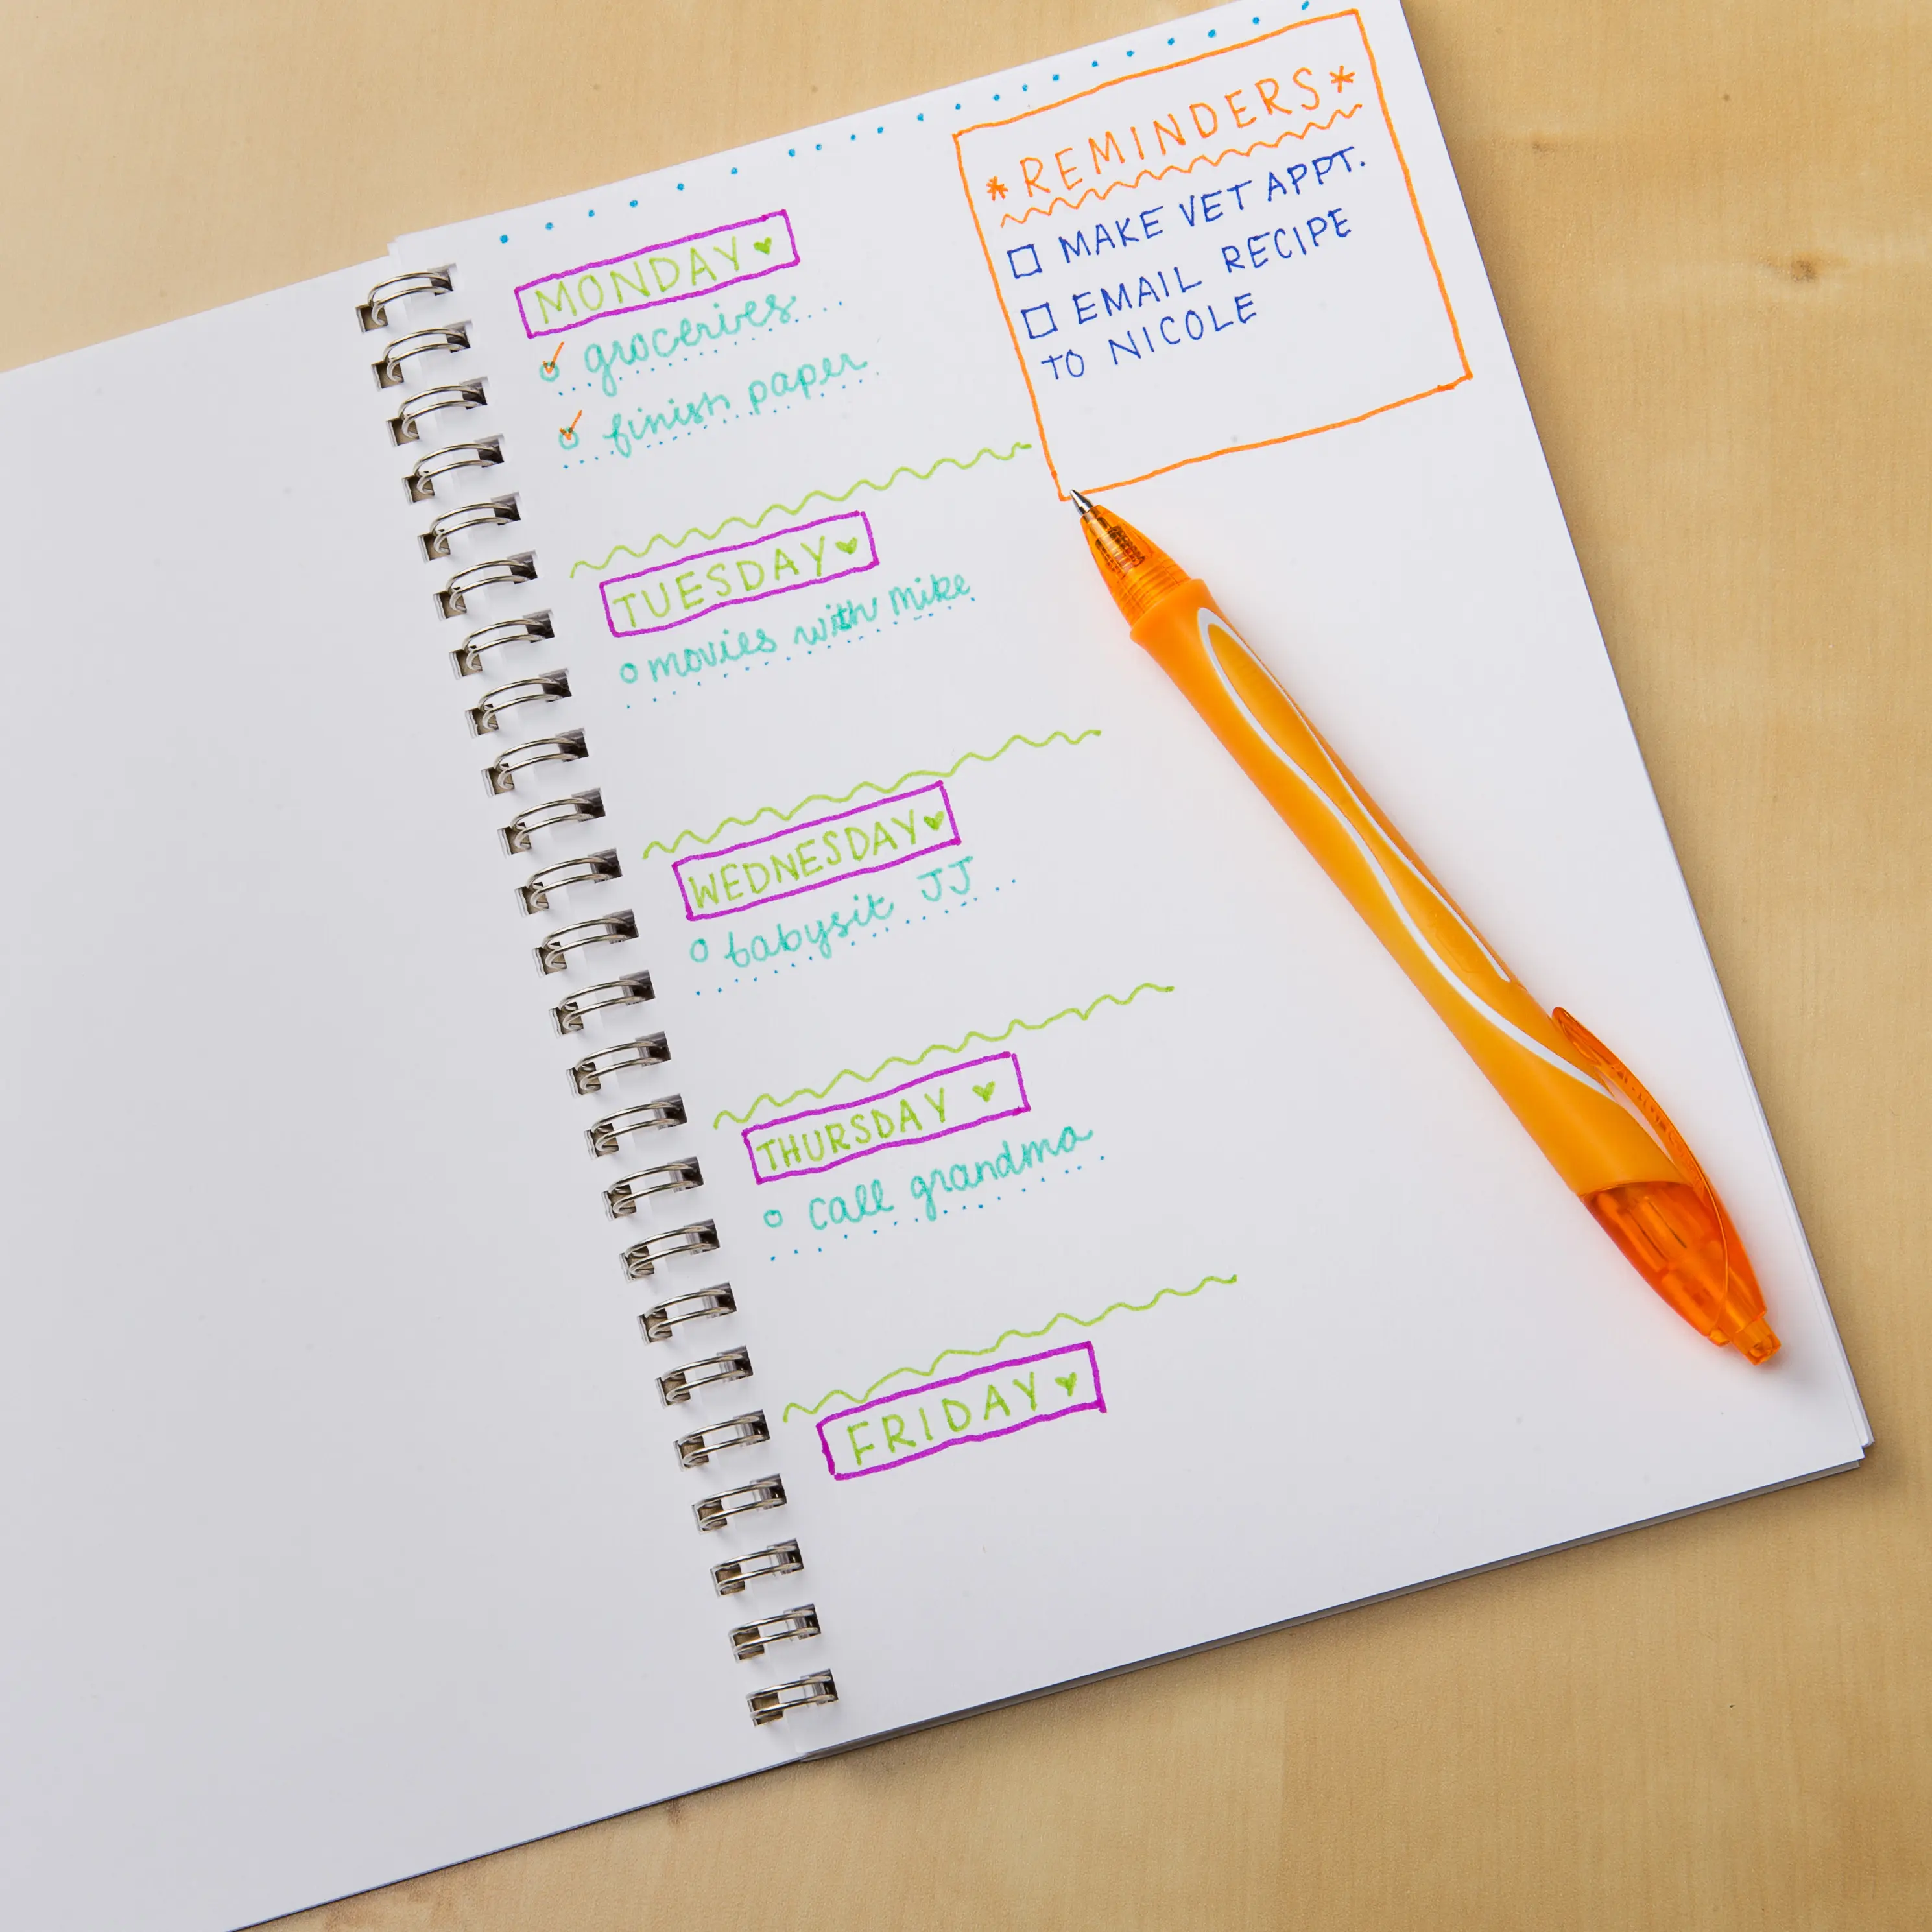 MONDAY
groceries
finish paper
TUESDAY
movies with mike
WEDNESDAY
babysit JJ
THURSDAY
call grandma
FRIDAY
*REMINDERS*
MAKE VET APPT.
EMAIL RECIPE
TO NICOLE